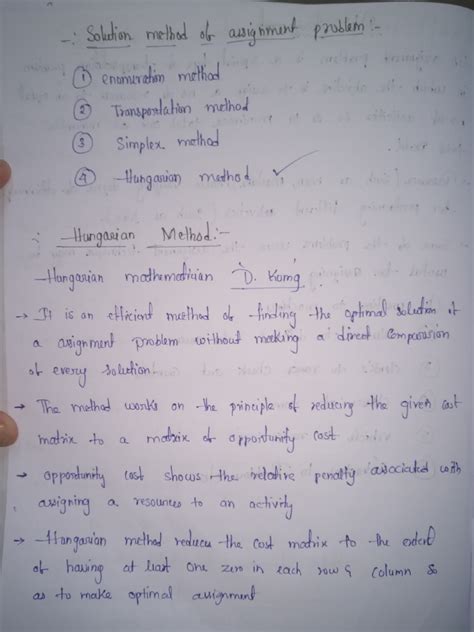 -: Solution method of assignment problem :-
① enumeration method
② Transportation method
③ Simplex method
④ Hungarian method ✓
: Hungarian Method :-
Hungarian mathematician D. Konig
→ It is an efficient method of finding the optimal solution of
a assignment problem without making a direct comparision
of every solution.
→ The method works on the principle of reducing the given cost
matrix to a matrix of opportunity cost
→ opportunity cost shows the relative penalty associated with
assigning a resources to an activity
→ Hungarian method reduces the cost matrix to the extent
of having at least one zero in each row & column so
as to make optimal assignment